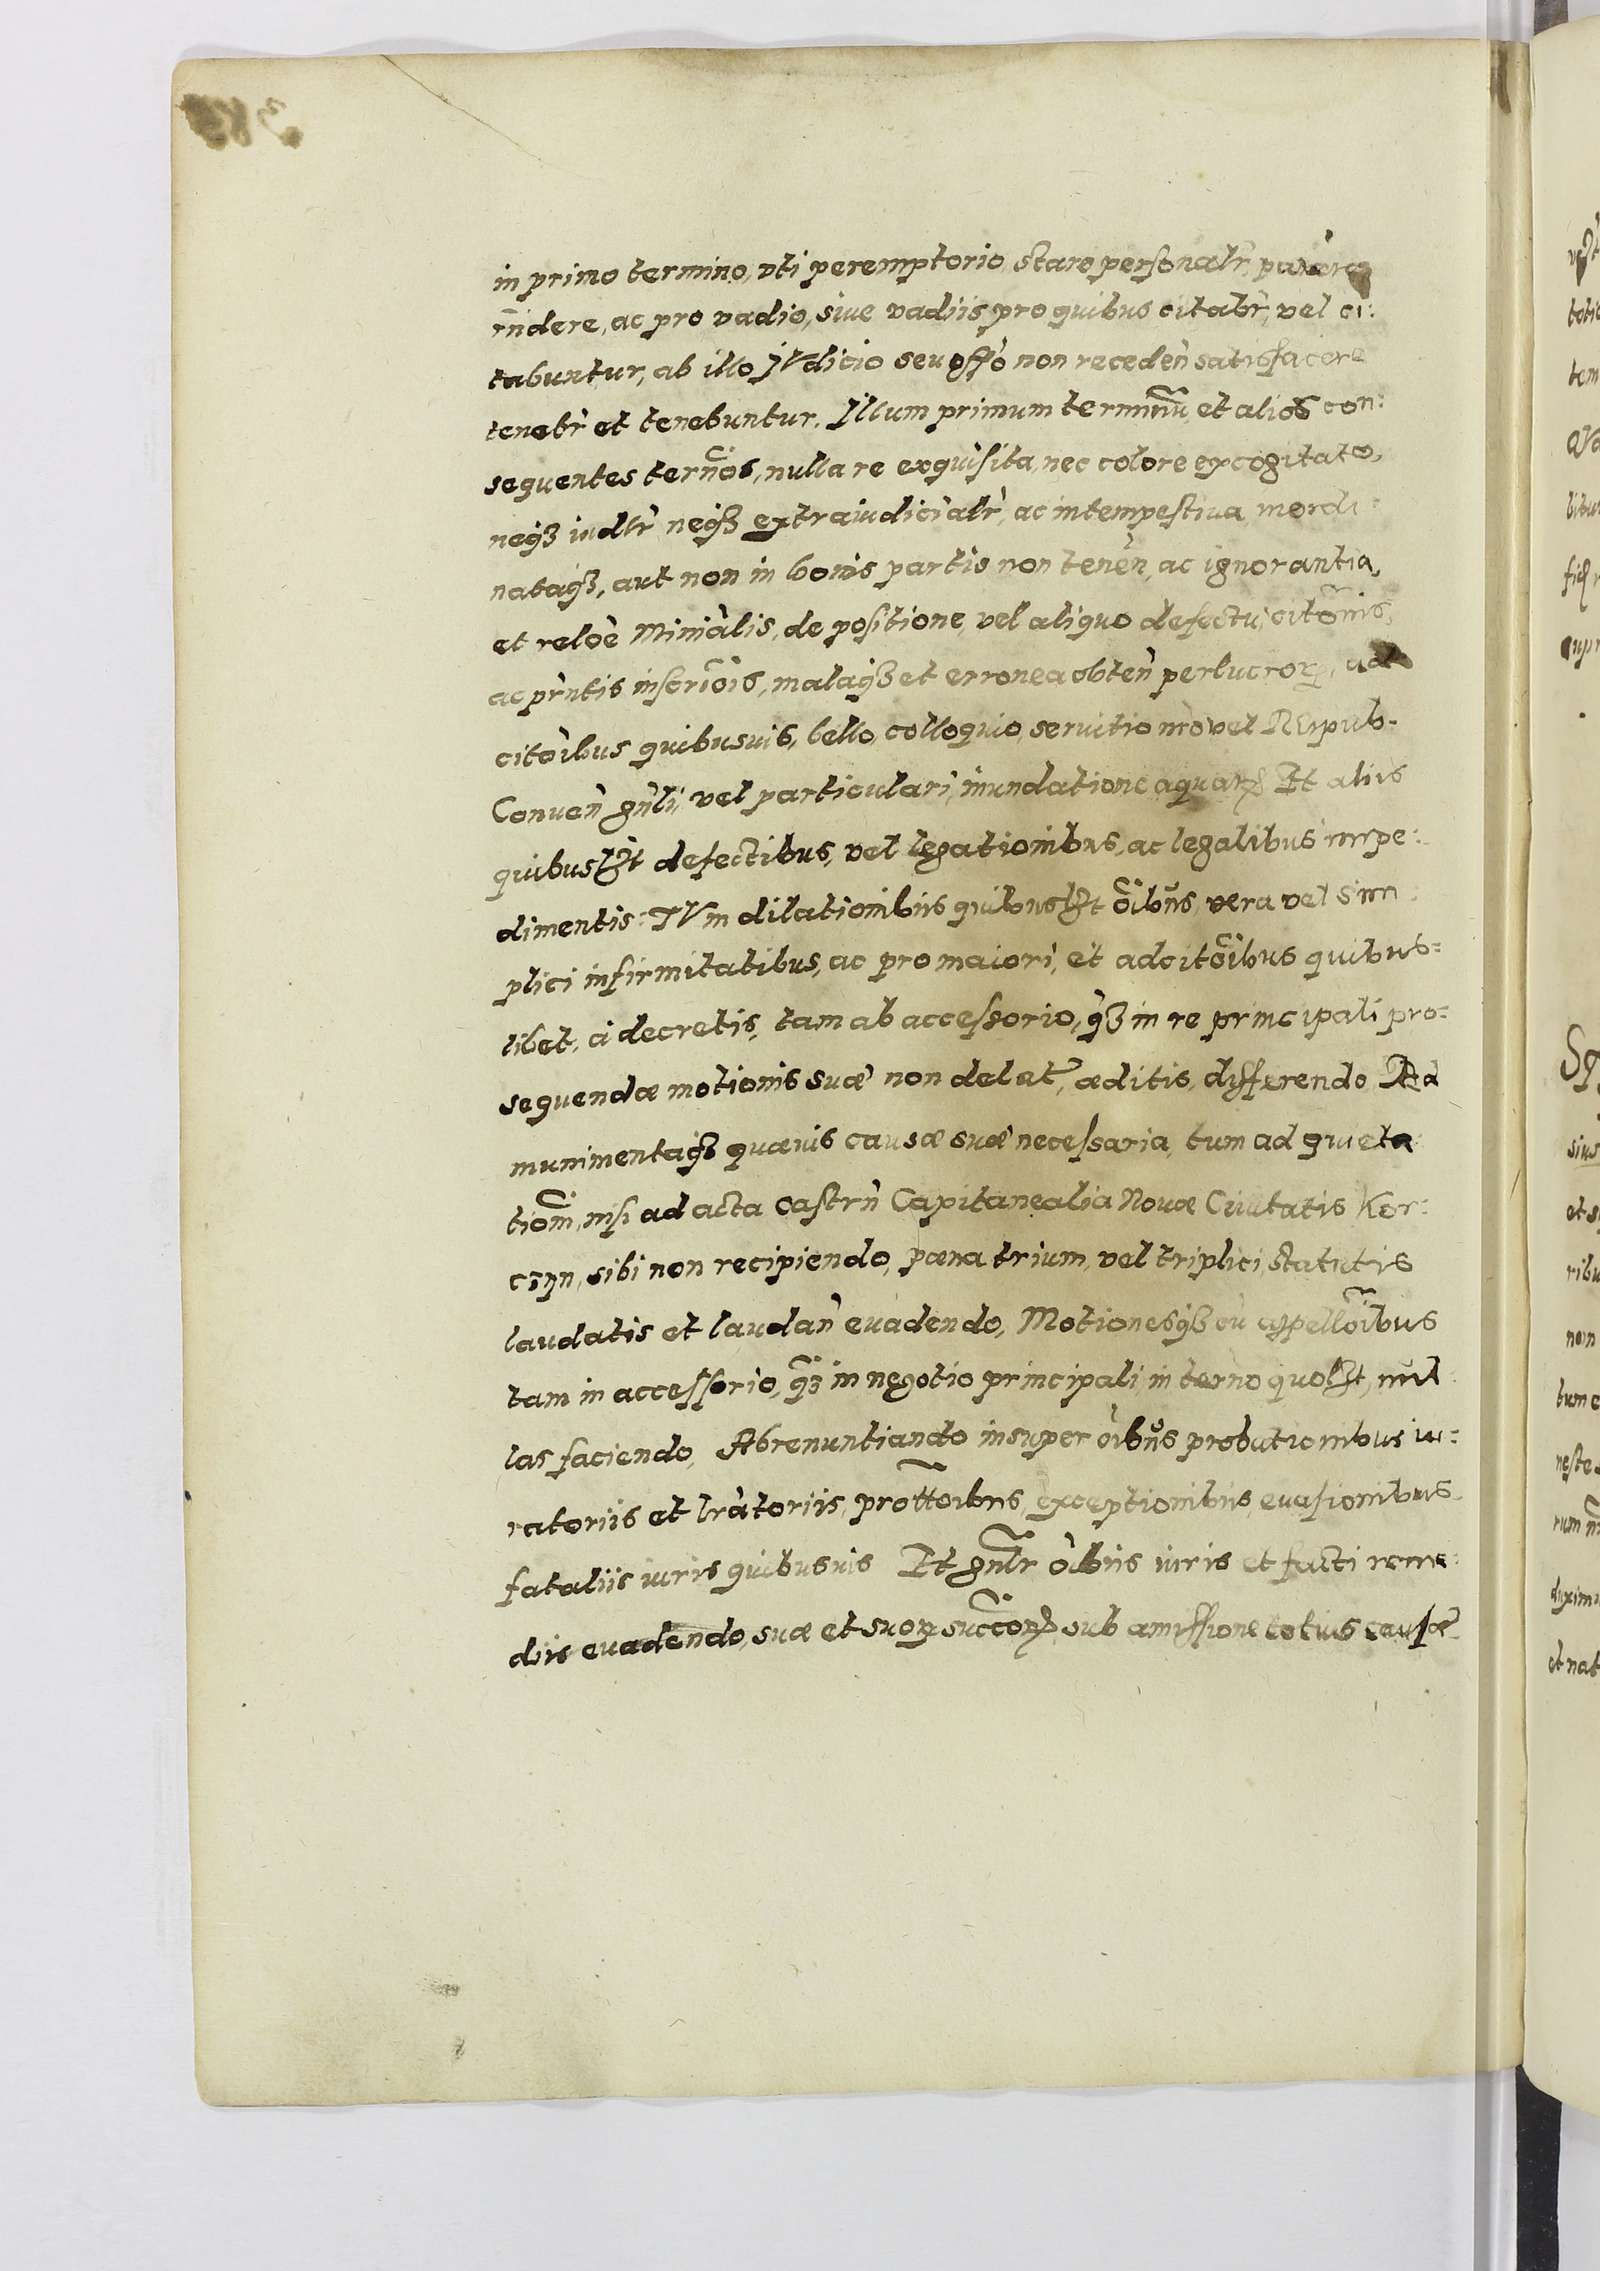 in primo termino, vti peremptorio, stare personalr, parere
rñdere, ac pro vadio, siue vadiis pro quibus citabr̀, vel ci:
tabuntur, ab illo IVdicio seu offò non receden̄ satisfacere
tenebr̀ et tenebuntur. Illum primum terminū et alios con:
sequentes term̃os, nulla re exquisita, nec colore excogitato,
neqꝫ iudlr̀ neqꝫ extraiudicialr̀, ac intempestiua inordi:
nataqꝫ, aut non in bonis partis non tenen̄, ac ignorantia,
et reloe Mini̇alis, de positione, vel aliquo defectu citõnis,
ac prn̄tis inscriõis, malaqꝫ et erronea obten̄ per lucroꝝ,
citõibus quibusuis, bello, colloquio, seruitio nrō vel Reipub.
Conuen̄ gn̄li, vel particulari, inundatione aquaꝝ Et aliis
quibuslꝫt defectibus, vel legationibus, ac legalibus impe:
dimentis: TVm dilationibus quibuslꝫt õibus, vera vel sim:
plici infirmitatibus, ac pro maiori, et ad citõibus quibus=
libet, a decretis, tam ab accessorio, qꝫ in re principali pro=
sequendæ motionis suæ non delat̃, æditis, differendo Ad
munimentaqꝫ quæuis causæ suæ necessaria, tum ad quieta
tiõm, nisi ad acta castrn̄ Capitanealia Nouæ Ciuitatis Kor:
czyn, sibi non recipiendo, pæna trium, vel triplici, statutis
laudatis et laudan̄ euadendo, Motionesqꝫ cū appellõibus
tam in accessorio, qꝫ in negotio principali, in tern̄o quolꝫt, nul:
las faciendo, Abrenuntiando insuper õibus probationibus iu:
ratoriis et lrātoriis, prottõibus, exceptionibus, euasionibus
fataliis iuris quibusuis Et gnl̃r õibus iuris et facti reme:
diis euadendo, suæ et suoꝝ succ̃oꝝ, sub amissione totius causæ